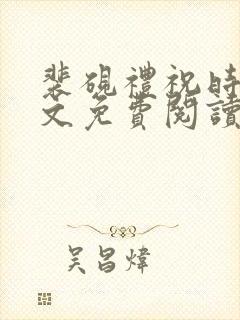 裴硯禮祝時
文免費閱讀
吴昌煒